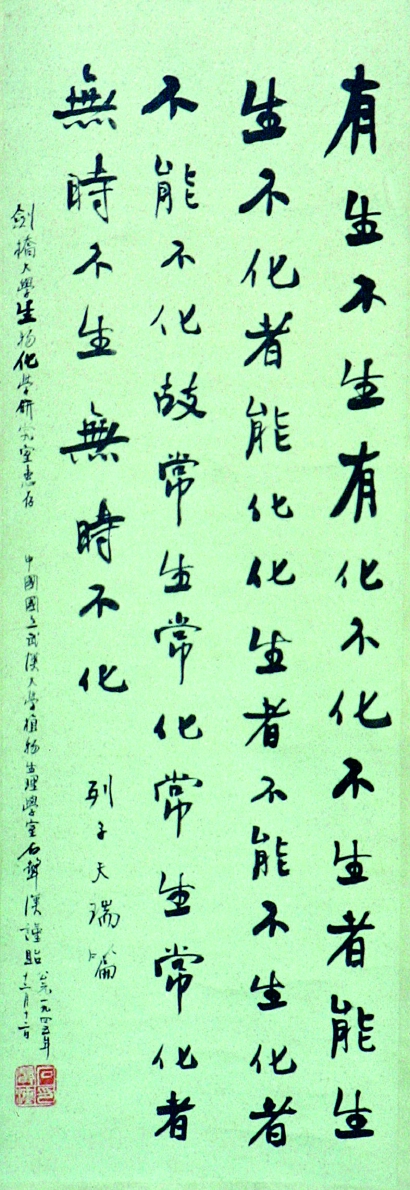 有生不生有化不化不生者能生
生不化者能化化生者不能不生化者
不能不化故常生常化常生常化者
無時不生無時不化
列子天瑞篇
劍橋大學生物化學研究室惠存
中國國立武漢大學植物生理學室石聲漢謹貽
公元一九四五年
十二月